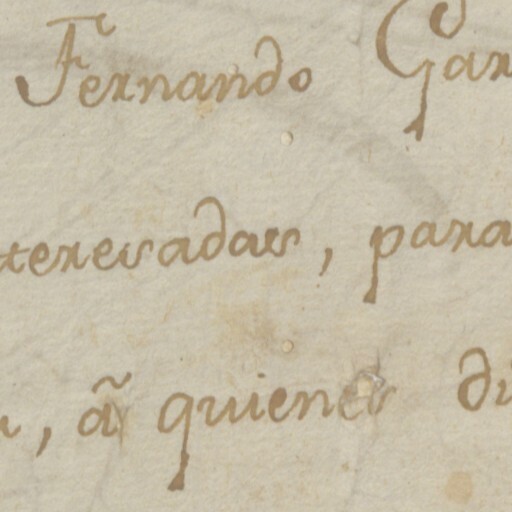 Fernando Gar
teresadas, para
, â quienes di